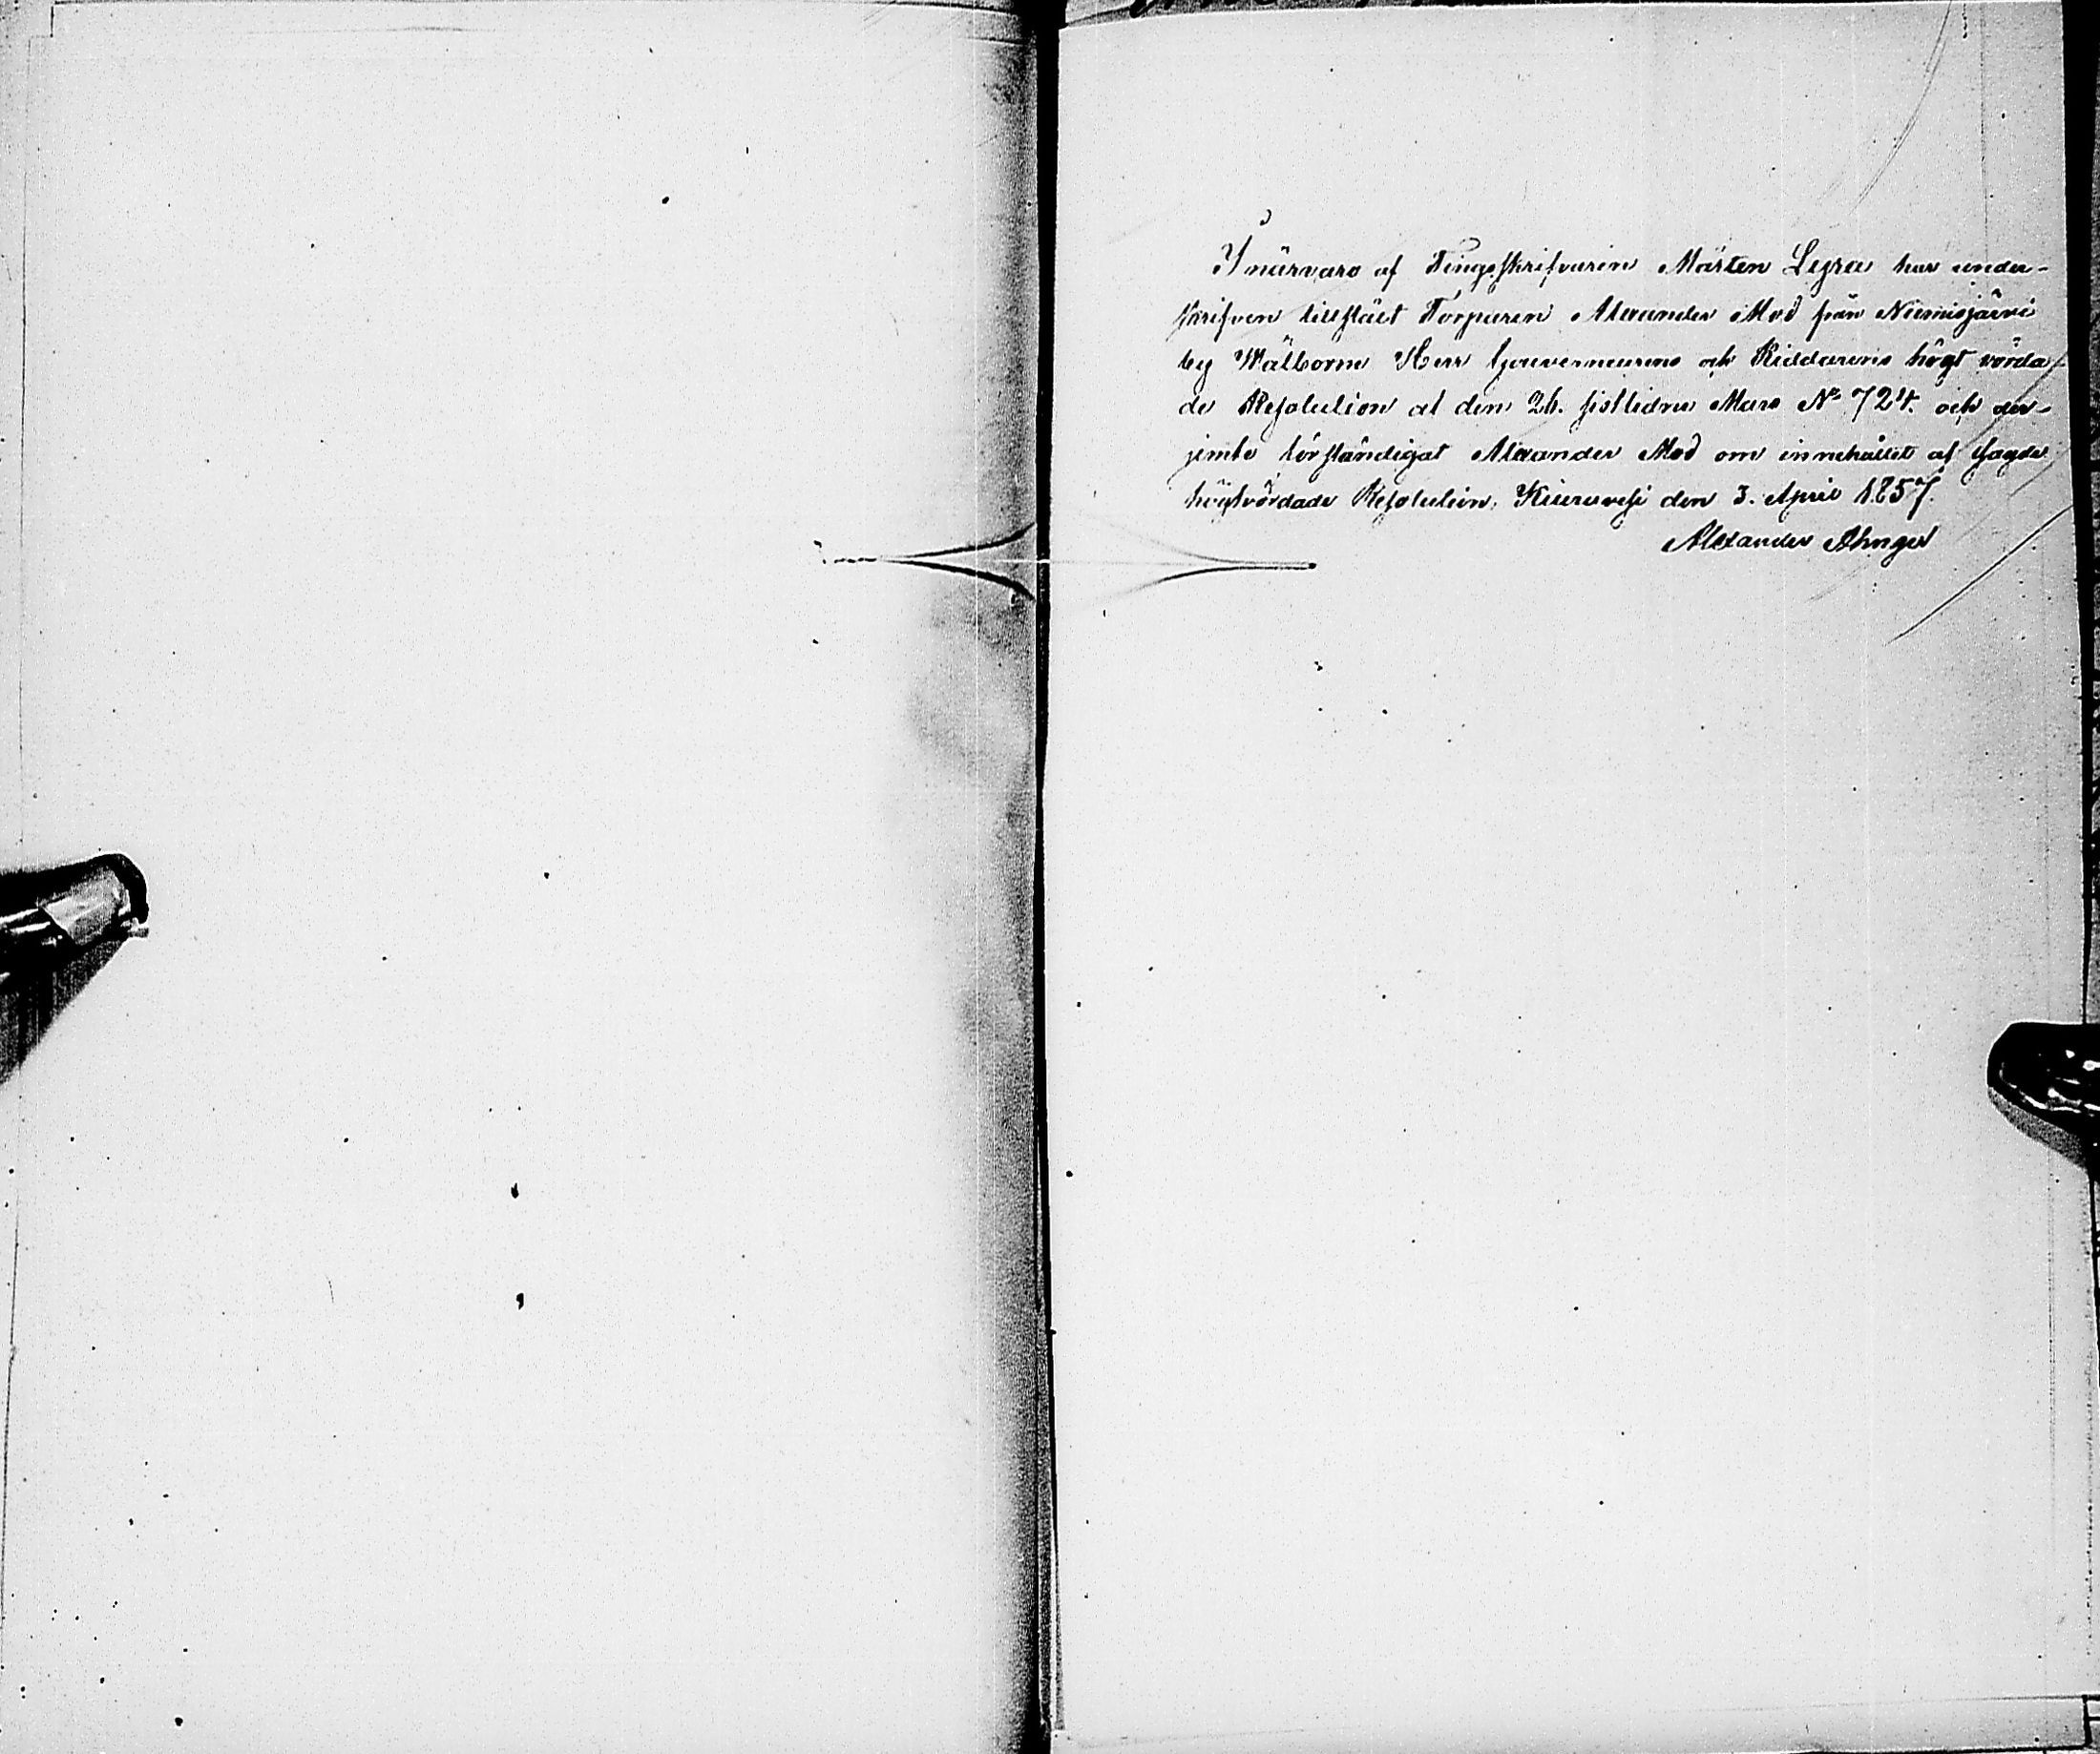 I närvaro af Tingsskrifvaren Mårten Legra har under-
skrifven tillstält Torparen Alexander Mod från Niemisjärvi
by Wälborne Herr Gouverneurens och Riddarens högt vörda-
de Resolution af den 26. sistlidne Mars No 724. och der-
jemte förständigat Alexander Mod om innehållet af sagde
högtvördade Resolution, Kiuruvesi den 3. April 1857.
Alexander Ahnger